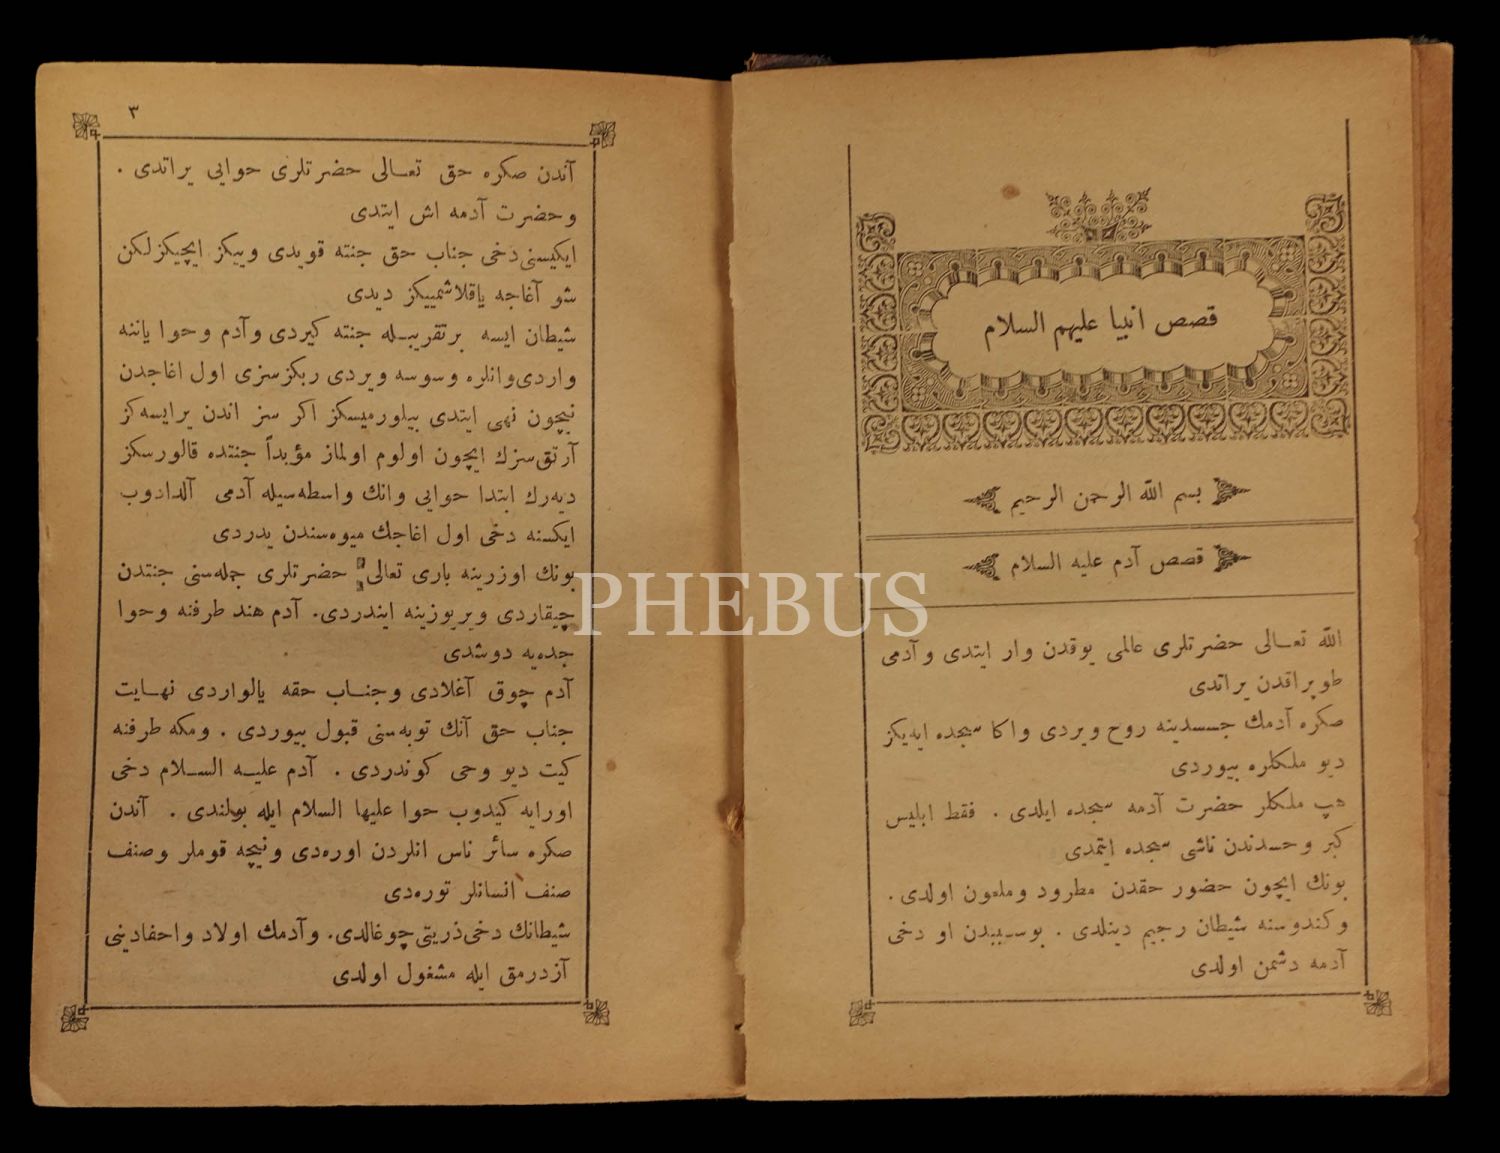 قصص انبيا عليهم السلام
بسم الله الرحمن الرحيم
قصص آدم عليه السلام
الله تعالى حضرتلرى عالمى يوقدن وار ايتدى و آدمى
طوپراقدن يراتدى
صكره آدمك جسدينه روح ويردى و اكا سجده ايديكز
ديو ملكلره بيوردى
هپ ملكلر حضرت آدمه سجده ايلدى . فقط ابليس
كبر و حسدندن ناشى سجده ايتمدى
بونك ايچون حضور حقدن مطرود و ملعون اولدى .
و كندوسنه شيطان رجيم دينلدى . بوسببدن او دخى
آدمه دشمن اولدى
٣
آندن صكره حق تعالى حضرتلرى حوايى يراتدى .
و حضرت آدمه اش ايتدى
ايكيسنى دخى جناب حق جنته قويدى و ييكز ايچيكز لكن
شو آغاجه ياقلاشمييكز ديدى
شيطان ايسه برتقريبله جنته كيردى و آدم و حوا ياننه
واردى و انلره وسوسه ويردى ربكز سزى اول اغاجدن
نيچون نهى ايتدى بيلورميسكز اكر سز اندن يرايسه كز
آرتق سزك ايچون اولوم اولماز مؤبداً جنتده قالورسكز
ديه رك ابتدا حوايى و انك واسطه سيله آدمى آلدادوب
ايكسنه دخى اول اغاجك ميوه سندن يدردى
بونك اوزرينه بارى تعالى حضرتلرى جمله سنى جنتدن
چيقاردى و يريوزينه ايندردى. آدم هند طرفنه و حوا
جده يه دوشدى
آدم چوق آغلادى و جناب حقه يالواردى نهايت
جناب حق آنك توبه سنى قبول بيوردى . و مكه طرفنه
كيت ديو وحى كوندردى . آدم عليه السلام دخى
اورايه كيدوب حوا عليها السلام ايله بولندى . آندن
صكره سائر ناس انلردن اوره دى و نيچه قوملر و صنف
صنف انسانلر توره دى
شيطانك دخى ذريتى چوغالدى. و آدمك اولاد و احفادينى
آزدرمق ايله مشغول اولدى
PHEBUS